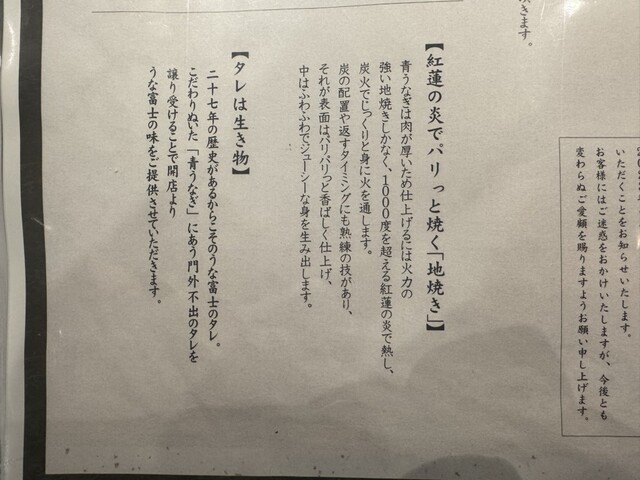 頂きます。
いただくことをお知らせいたします。
お客様にはご迷惑をおかけいたしますが、今後とも
変わらぬご愛顧を賜りますようお願い申し上げます。
【紅蓮の炎でパリっと焼く「地焼き」】
青うなぎは肉が厚いため仕上げるには火力の
強い地焼きしかなく、1000度を超える紅蓮の炎で熱し、
炭火でじっくりと身に火を通します。
炭の配置や返すタイミングにも熟練の技があり、
それが表面はパリパリっと香ばしく仕上げ、
中はふわふわでジューシーな身を生み出します。
【タレは生き物】
二十七年の歴史があるからこそのうな富士のタレ。
こだわりぬいた「青うなぎ」にあう門外不出のタレを
譲り受けることで開店より
うな富士の味をご提供させていただきます。